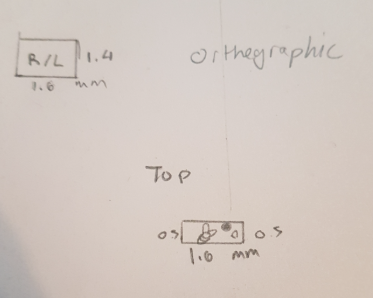 R/L 1.4
1.6 mm
orthegraphic
Top
0.5 0.5
1.6 mm